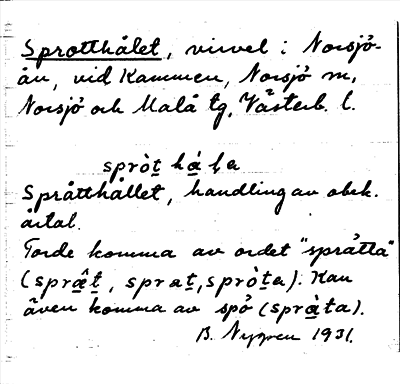 Sprotthålet, virvel i Norsjö-
ån, vid Kammen, Norsjö sn,
Norsjö och Malå tg, Västerb. l.
spròt hála
Språtthållet, handling av obek.
årtal.
Torde komma av ordet "språtta"
(sprât, sprat, spròta). Kan
även komma av spö (spràta).
B. Nygren 1931.